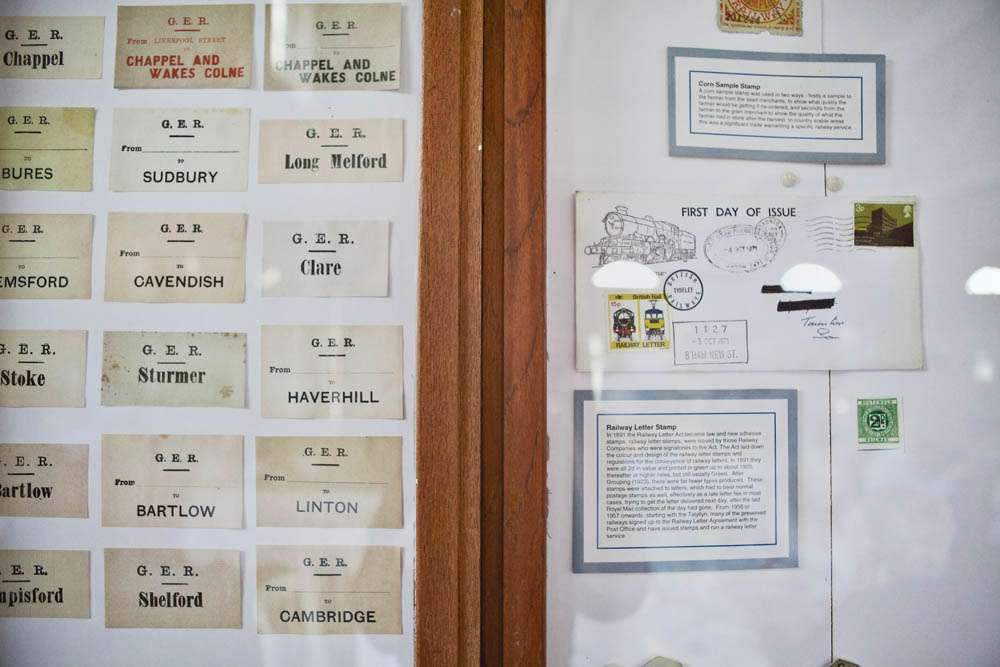 G. E. R.
Chappel
G. E. R.
From LIVERPOOL STREET
TO
CHAPPEL AND
WAKES COLNE
G. E. R.
CHAPPEL AND
WAKES COLNE
G. E. R.
TO
BURES
G. E. R.
From
TO
SUDBURY
G. E. R.
Long Melford
G. E. R.
TO
EMSFORD
G. E. R.
From
TO
CAVENDISH
G. E. R.
Clare
G. E. R.
Stoke
G. E. R.
Sturmer
G. E. R.
From
TO
HAVERHILL
G. E. R.
Bartlow
G. E. R.
From
TO
BARTLOW
G. E. R.
From
TO
LINTON
G. E. R.
mpisford
G. E. R.
Shelford
G. E. R.
From
TO
CAMBRIDGE
RAILWAY
Corn Sample Stamp
A corn sample stamp was used in two ways - firstly a sample to
the farmer from the seed merchants, to show what quality the
farmer would be getting if he ordered, and secondly from the
farmer to the grain merchant to show the quality of what the
farmer had in store after the harvest. In country arable areas
this was a significant trade warranting a specific railway service.
FIRST DAY OF ISSUE
3p
BRITISH
TYSELEY
RAILWAYS
British Rail
15p
RAILWAY LETTER
1127
-3 OCT 1971
B'HAM NEW ST.
Taunton
Railway Letter Stamp
In 1891 the Railway Letter Act became law and new adhesive
stamps, railway letter stamps, were issued by those Railway
Companies who were signatories to the Act. The Act laid down
the colour and design of the railway letter stamps and
regulations for the conveyance of railway letters. In 1891 they
were all 2d in value and printed in green up to about 1920,
thereafter at higher rates, but still usually Green. After
Grouping (1923), there were far fewer types produced. These
stamps were attached to letters, which had to bear normal
postage stamps as well, effectively as a late letter fee in most
cases, trying to get the letter delivered next day, after the last
Royal Mail collection of the day had gone. From 1956 or
1957 onwards, starting with the Talyllyn, many of the preserved
railways signed up to the Railway Letter Agreement with the
Post Office and have issued stamps and run a railway letter
service.
RAILWAY